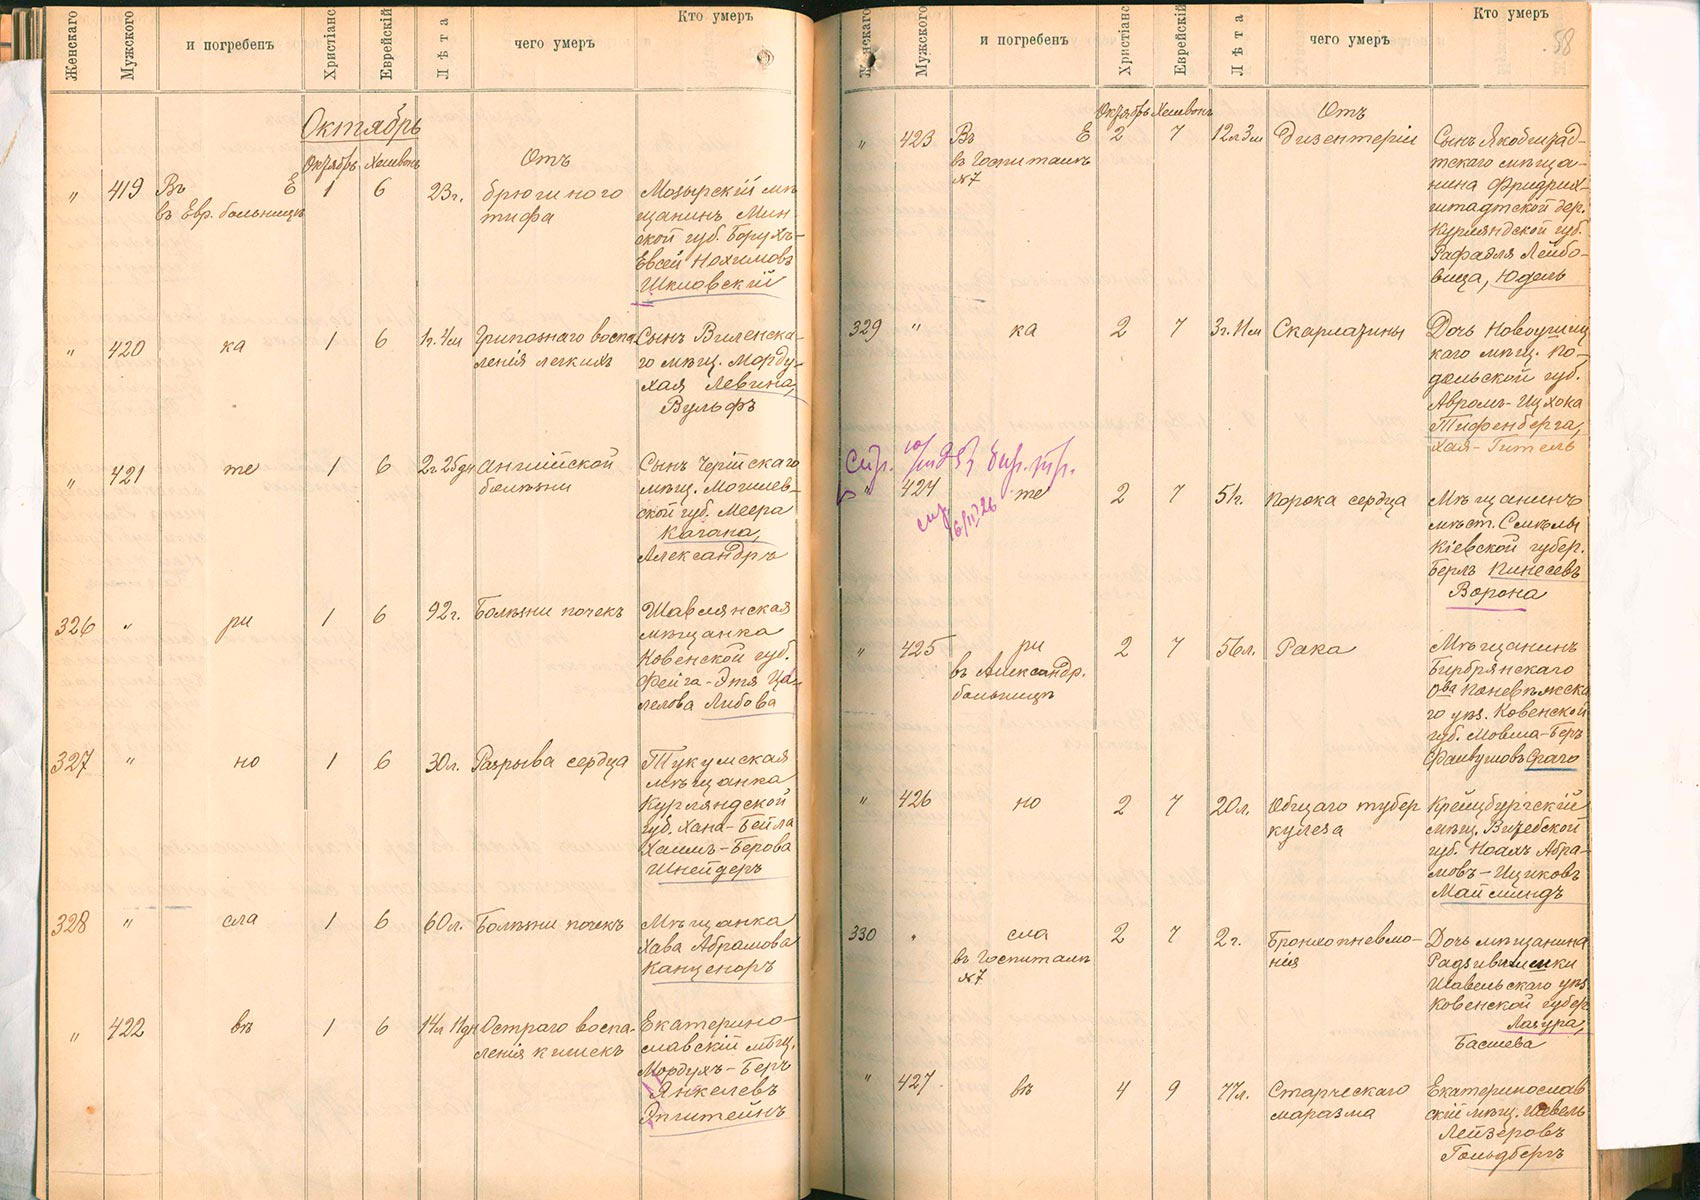 Женскаго
Мужского
и погребенъ
Христіанс
Еврейскій
Лѣта
чего умеръ
Кто умеръ
Октябрь
Октябрь Хешвонъ
Отъ
" 419 Въ Е 1 6 23г. брюшного
въ Евр. больницѣ
тифа
Мозырскій мѣ
щанинъ Мин
ской губ. Борухъ-
Евсей Нохимовъ
Шкловскій
" 420 ка 1 6 1г. 4м Грипознаго воспа
ленія легкихъ
Сынъ Виленска-
го мѣщ. Морду-
хая Левина,
Вульфъ
" 421 те 1 6 2г. 25дн Англійской
болѣзни
Сынъ Черійскаго
мѣщ. Могилев-
ской губ. Меера
Кагана,
Александръ
326 " ри 1 6 92г. Болѣзни почекъ
Шавлянская
мѣщанка
Ковенской губ.
Фейга-Этя Ца-
лелова Либова
327 " но 1 6 30л. Разрыва сердца
Туккумская
мѣщанка
Курляндской
губ. Хана-Бейла
Хаимъ-Берова
Шнейдеръ
328 " сла 1 6 60л. Болѣзни почекъ
Мѣщанка
Хава Абрамова
Канценоръ
" 422 въ 1 6 14л 11дн Остраго воспа-
ленія кишекъ
Екатерино-
славскій мѣщ.
Мордухъ-Беръ
Янкелевъ
Эпштейнъ
Женскаго
Мужского
и погребенъ
Христіанс
Еврейскій
Лѣта
чего умеръ
Кто умеръ
58
Октябрь Хешвонъ
Отъ
" 423 Въ Е 2 7 12л 3м Дизентеріи
въ Госпиталѣ
№7
Сынъ Якобштад-
тскаго мѣща-
нина Фридрих-
штадтской дер.
Курляндской губ.
Рафаэля Лейбо-
вица, Юдель
329 " ка 2 7 3г. 11м Скарлатины
Дочь Новоушиц
каго мѣщ. По-
дольской губ.
Авромъ-Ицхока
Тифенберга,
Хая-Гитель
" 424 те 2 7 51г. Порока сердца
16/11 26
Мѣщанинъ
мѣст. Смѣлы
Кіевской губер.
Берль Пинесевъ
Ворона
" 425 ри 2 7 56л. Рака
въ Александр.
больницѣ
Мѣщанинъ
Бирбрянскаго
О-ва Поневѣжска
го уѣз. Ковенской
губ. Мовша-Беръ
Файвушовъ Фраго
" 426 но 2 7 20л. Общаго тубер
кулеза
Крейцбургскій
мѣщ. Витебской
губ. Ноахъ Абра-
мовъ-Ициковъ
Майминдъ
330 " сла 2 7 2г. Бронхопневмо-
нія
въ Госпиталѣ
№7
Дочь мѣщанина
Радзивилишки
Шавельскаго уѣз
Ковенской губер
Лазура,
Басшева
" 427 въ 4 9 77л. Старческаго
маразма
Екатеринослав
скій мѣщ. Шевель
Лейзеровъ
Гольдбергъ